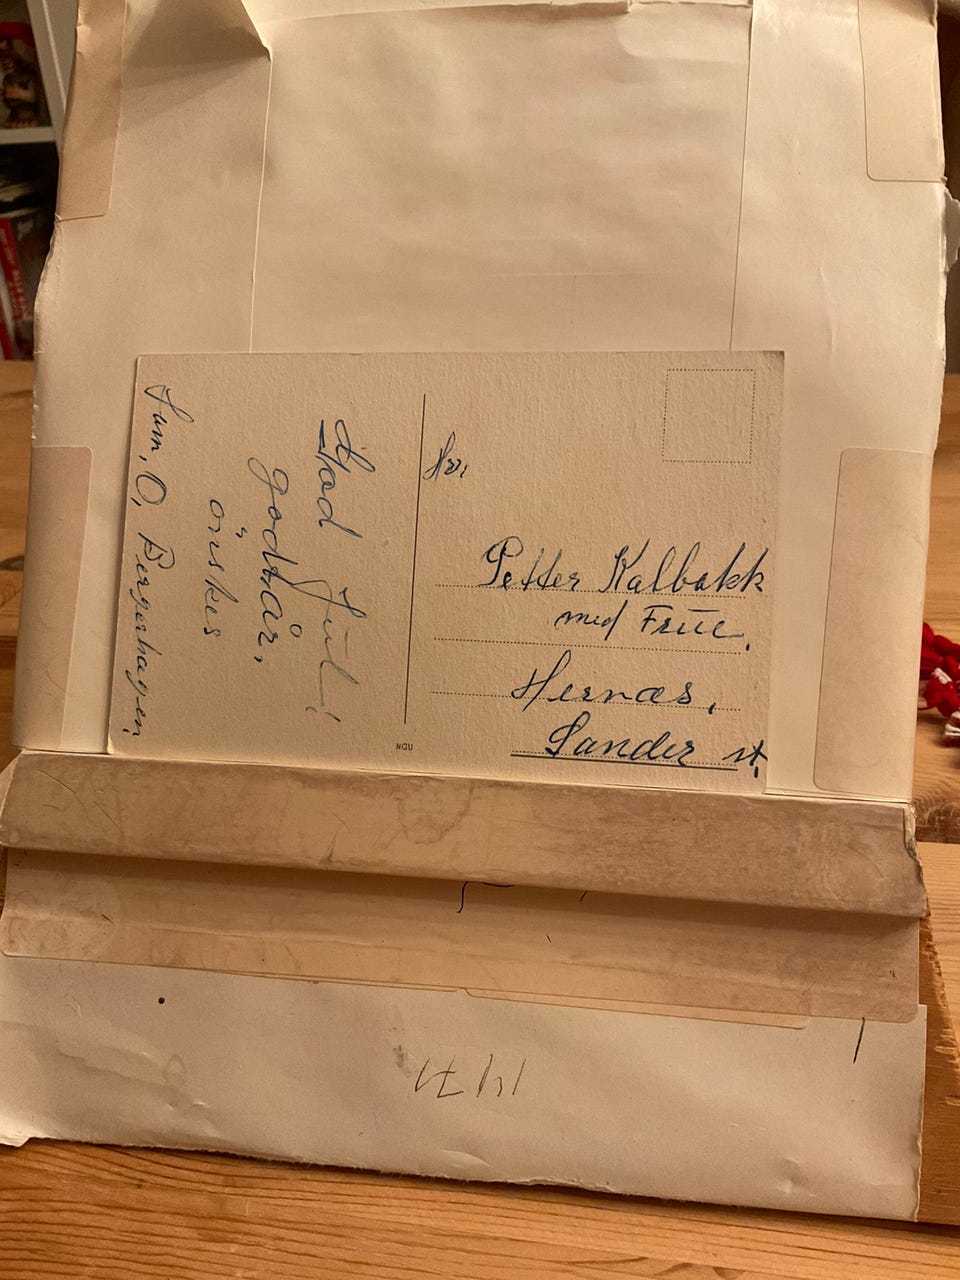 God Jul!
godtår,
önskes
Fam, O, Bergerhagen,
Hr:
Petter Kalbakk
med Frue,
Hernæs,
Sander st,
NGU